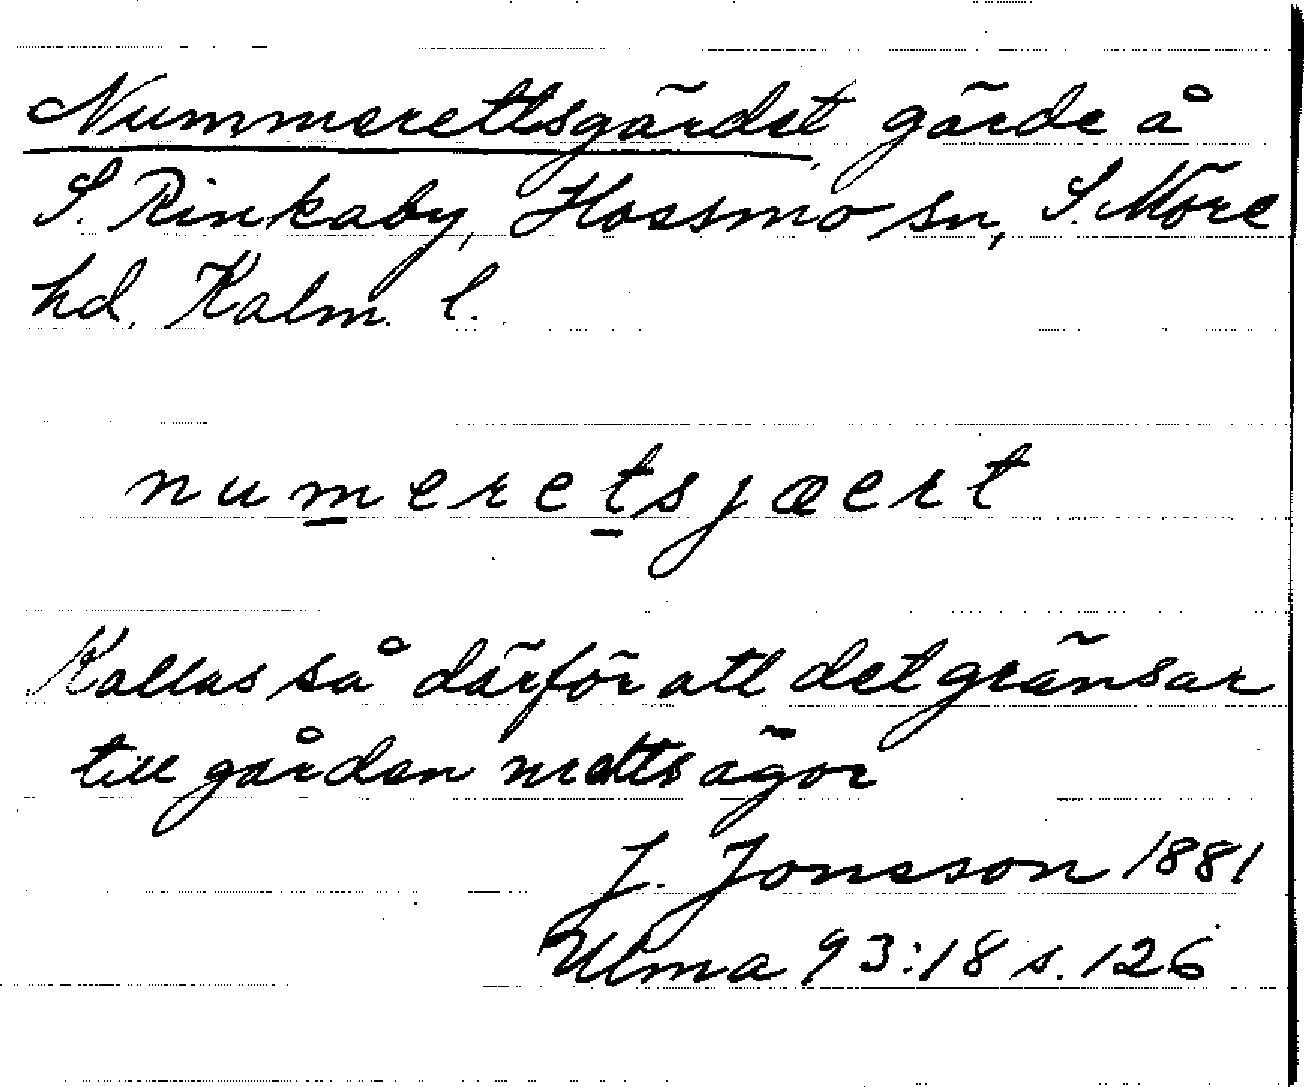 Nummerettsgärdet, gärde å
S. Rinkaby, Hossmo sn, S. Möre
hd. Kalm. l.
numeretsjæert
Kallas så därför att det gränsar
till gården nretts ägor
J. Jonsson 1881
Ulma 93:18 s. 126